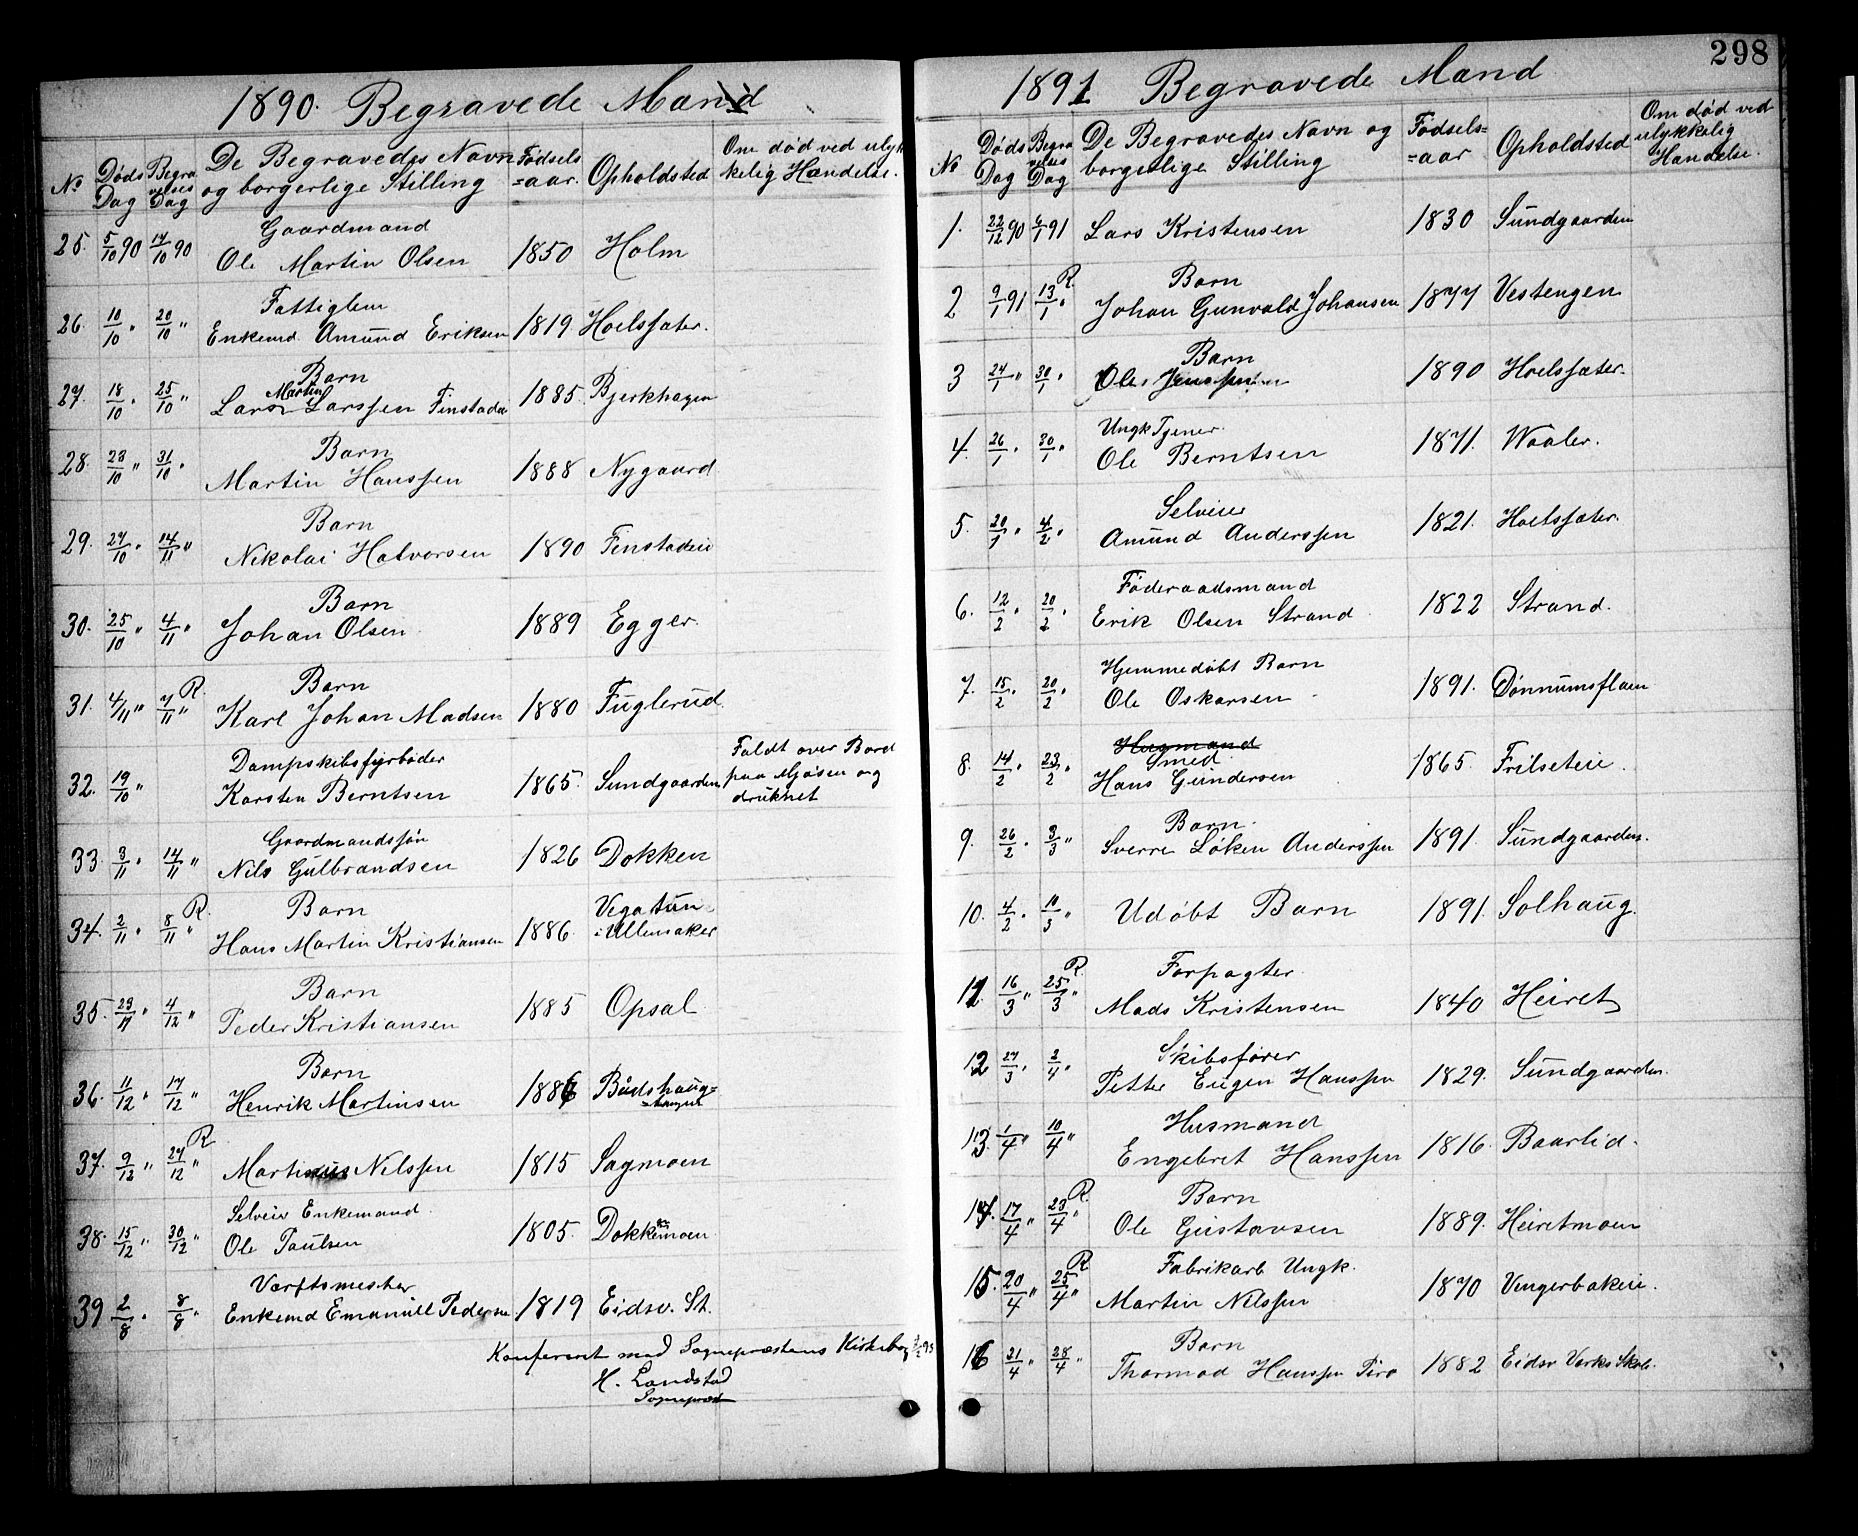 1890. Begravede Mænd
No Døds Dag Begravelses Dag De Begravedes Navn og borgerlige Stilling Fødsels=aar. Opholdsted Om død ved ulykkelig Hændelse.
Gaardmand
25. 5/10 90 14/10 90 Ole Martin Olsen 1850 Holm
Fattiglem
26. 10/10 " 20/10 " Enkemd Amund Eriksen 1819 Hoelsfater.
Barn
Martin
27. 18/10 " 25/10 " Lars Larssen Finstadei 1885. Bjerkhagen
Barn
28. 23/10 " 31/10 " Martin Hanssen 1888 Nygaard
Barn
29. 27/10 " 14/11 " Nikolai Halvorsen 1890 Finstadeie
Barn
30. 25/10 " 4/11 " Johan Olsen. 1889 Egger.
R. Barn
31. 4/11 " 7/11 " Karl Johan Madsen 1880 Fuglerud.
Dampskibsfyrbøder Faldt over Bord
32. 19/10 " Karsten Berntsen 1865. Sundgaarden paa Mjøsen og
druknet
Gaardmandssøn
33 3/11 " 14/11 " Nils Gulbrandsen 1826 Dokken
R. Barn Vegatun
34. 2/11 " 8/11 " Hans Martin Kristiansen 1886. i Ullensaker
Barn
35. 29/11 " 4/12 " Peder Kristiansen 1885 Opsal
Barn
36. 11/12 " 17/12 " Henrik Martinsen 1886 Bådshaug=
R
37. 9/12 " 27/12 " Martinius Nilssen 1815 Sagmoen
Selveier Enkemand.
38. 15/12 " 30/12 " Ole Paulsen 1805. Dokkenmoen
Værftsmester
39 2/8 " 8/8 " Enkemd Emanuel Pedersen 1819 Eidsv. St.
Konfereret med Sognepræstens Kirkebog
H. Landstad
Sognepræst
298
1891 Begravede Mænd
No Døds Dag Begravelses Dag De Begravedes Navn og borgerlige Stilling Fødsels=aar Opholdsted Om død ved ulykkelig Hændelse.
1. 22/12 90 6/1 91 Lars Kristensen 1830 Sundgaarden
R Barn
2 9/1 91 13/1 " Johan Gunvald Johansen 1877 Vestengen
Barn
3 24/1 " 30/1 " Ole Jenssen 1890 Hoelsfæter.
Ungk Tjener.
4. 26/1 " 30/1 " Ole Berntsen 1871. Waaler.
Selveier
5. 20/1 " 4/2 " Amund Anderssen 1821. Hoelsfæter.
Føderaadsmand
6. 12/2 " 20/2 " Erik Olsen Strand 1822 Strand.
Hjemmedøbt Barn
7. 15/2 " 20/2 " Ole Oskarsen 1891. Dønnumsflaen
Husmand
Smed
8. 14/2 " 23/2 " Hans Gundersen 1865. Frilseteie.
Barn.
9. 26/2 " 3/3 " Sverre Løken Anderssen 1891. Sundgaarden.
10. 4/2 " 10/3 " Udøbt Barn 1891. Solhaug.
R. Forpagter.
11 16/3 " 25/3 " Mads Kristensen 1840 Heiret
Skibsfører
12 27/3 " 2/4 " Petter Eugen Hanssen 1829. Sundgaarden.
Husmand
13. 1/4 " 10/4 " Engebret Hanssen 1816. Baarlid.
R. Barn
14. 17/4 " 23/4 " Ole Gustavsen 1889. Heiretmoen
R Fabrikarb Ungk.
15. 20/4 " 25/4 " Martin Nilssen 1870 Vengerbakeie.
Barn
16 21/4 " 28/4 " Thormod Hanssen Piro 1882 Eidsv Værks Skole.